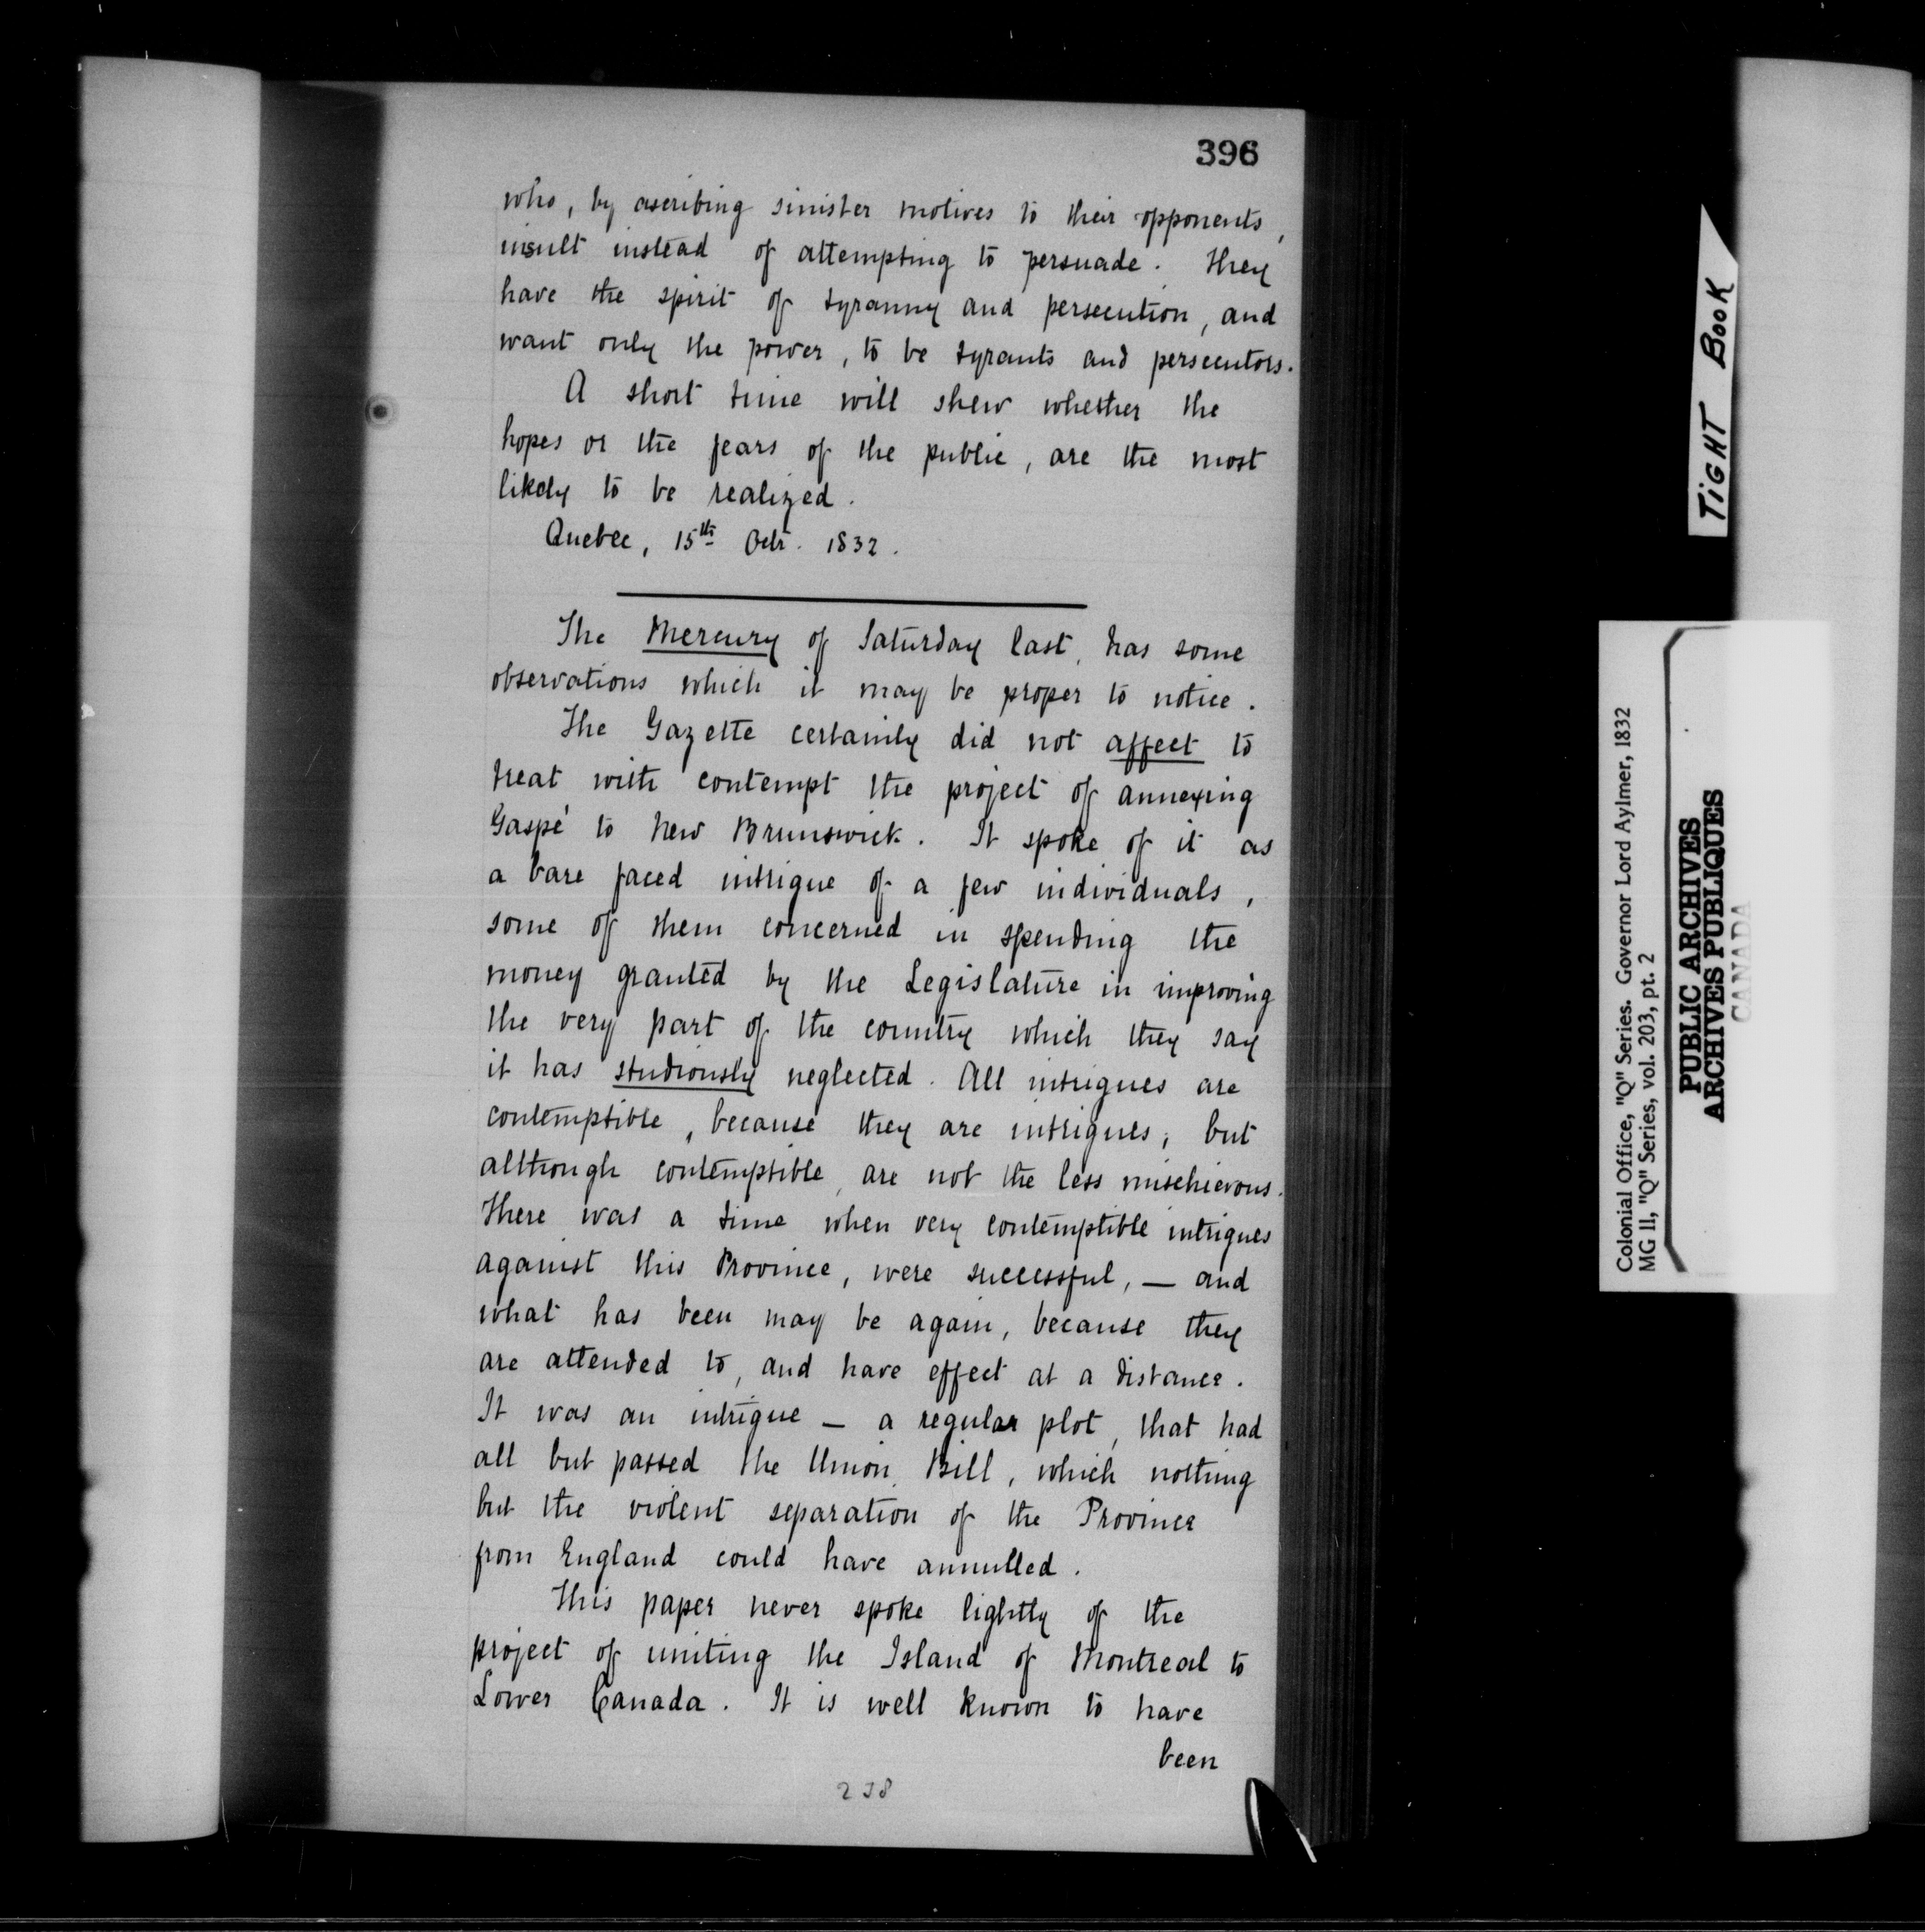 396
who, by ascribing sinister motives to their opponents,
insult instead of attempting to persuade. They
have the spirit of tyranny and persecution, and
want only the power, to be tyrants and persecutors.
A short time will shew whether the
hopes or the fears of the public, are the most
likely to be realized.
Quebec, 15th Octr. 1832.
The Mercury of Saturday last, has some
observations which it may be proper to notice.
The Gazette certainly did not affect to
treat with contempt the project of annexing
Gaspé to New Brunswick. It spoke of it as
a bare faced intrigue of a few individuals,
some of them concerned in spending the
money granted by the Legislature in improving
the very part of the country which they say
it has studiously neglected. All intrigues are
contemptible, because they are intrigues; but
although contemptible, are not the less mischievous.
There was a time when very contemptible intrigues
against this Province, were successful, — and
what has been may be again, because they
are attended to, and have effect at a distance.
It was an intrigue — a regular plot, that had
all but passed the Union Bill, which nothing
but the violent separation of the Province
from England could have annulled.
This paper never spoke lightly of the
project of uniting the Island of Montreal to
Lower Canada. It is well known to have
been
238
TIGHT BOOK
Colonial Office, "Q" Series. Governor Lord Aylmer, 1832
MG 11, "Q" Series, vol. 203, pt. 2
PUBLIC ARCHIVES
ARCHIVES PUBLIQUES
CANADA